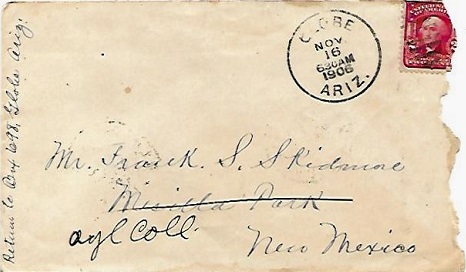 GLOBE
NOV
16
630AM
1906
ARIZ.
Return to Box 698, Globe Ariz.
Mr. Frank. S. Skidmore
Mesilla Park
agl Coll.
New Mexico